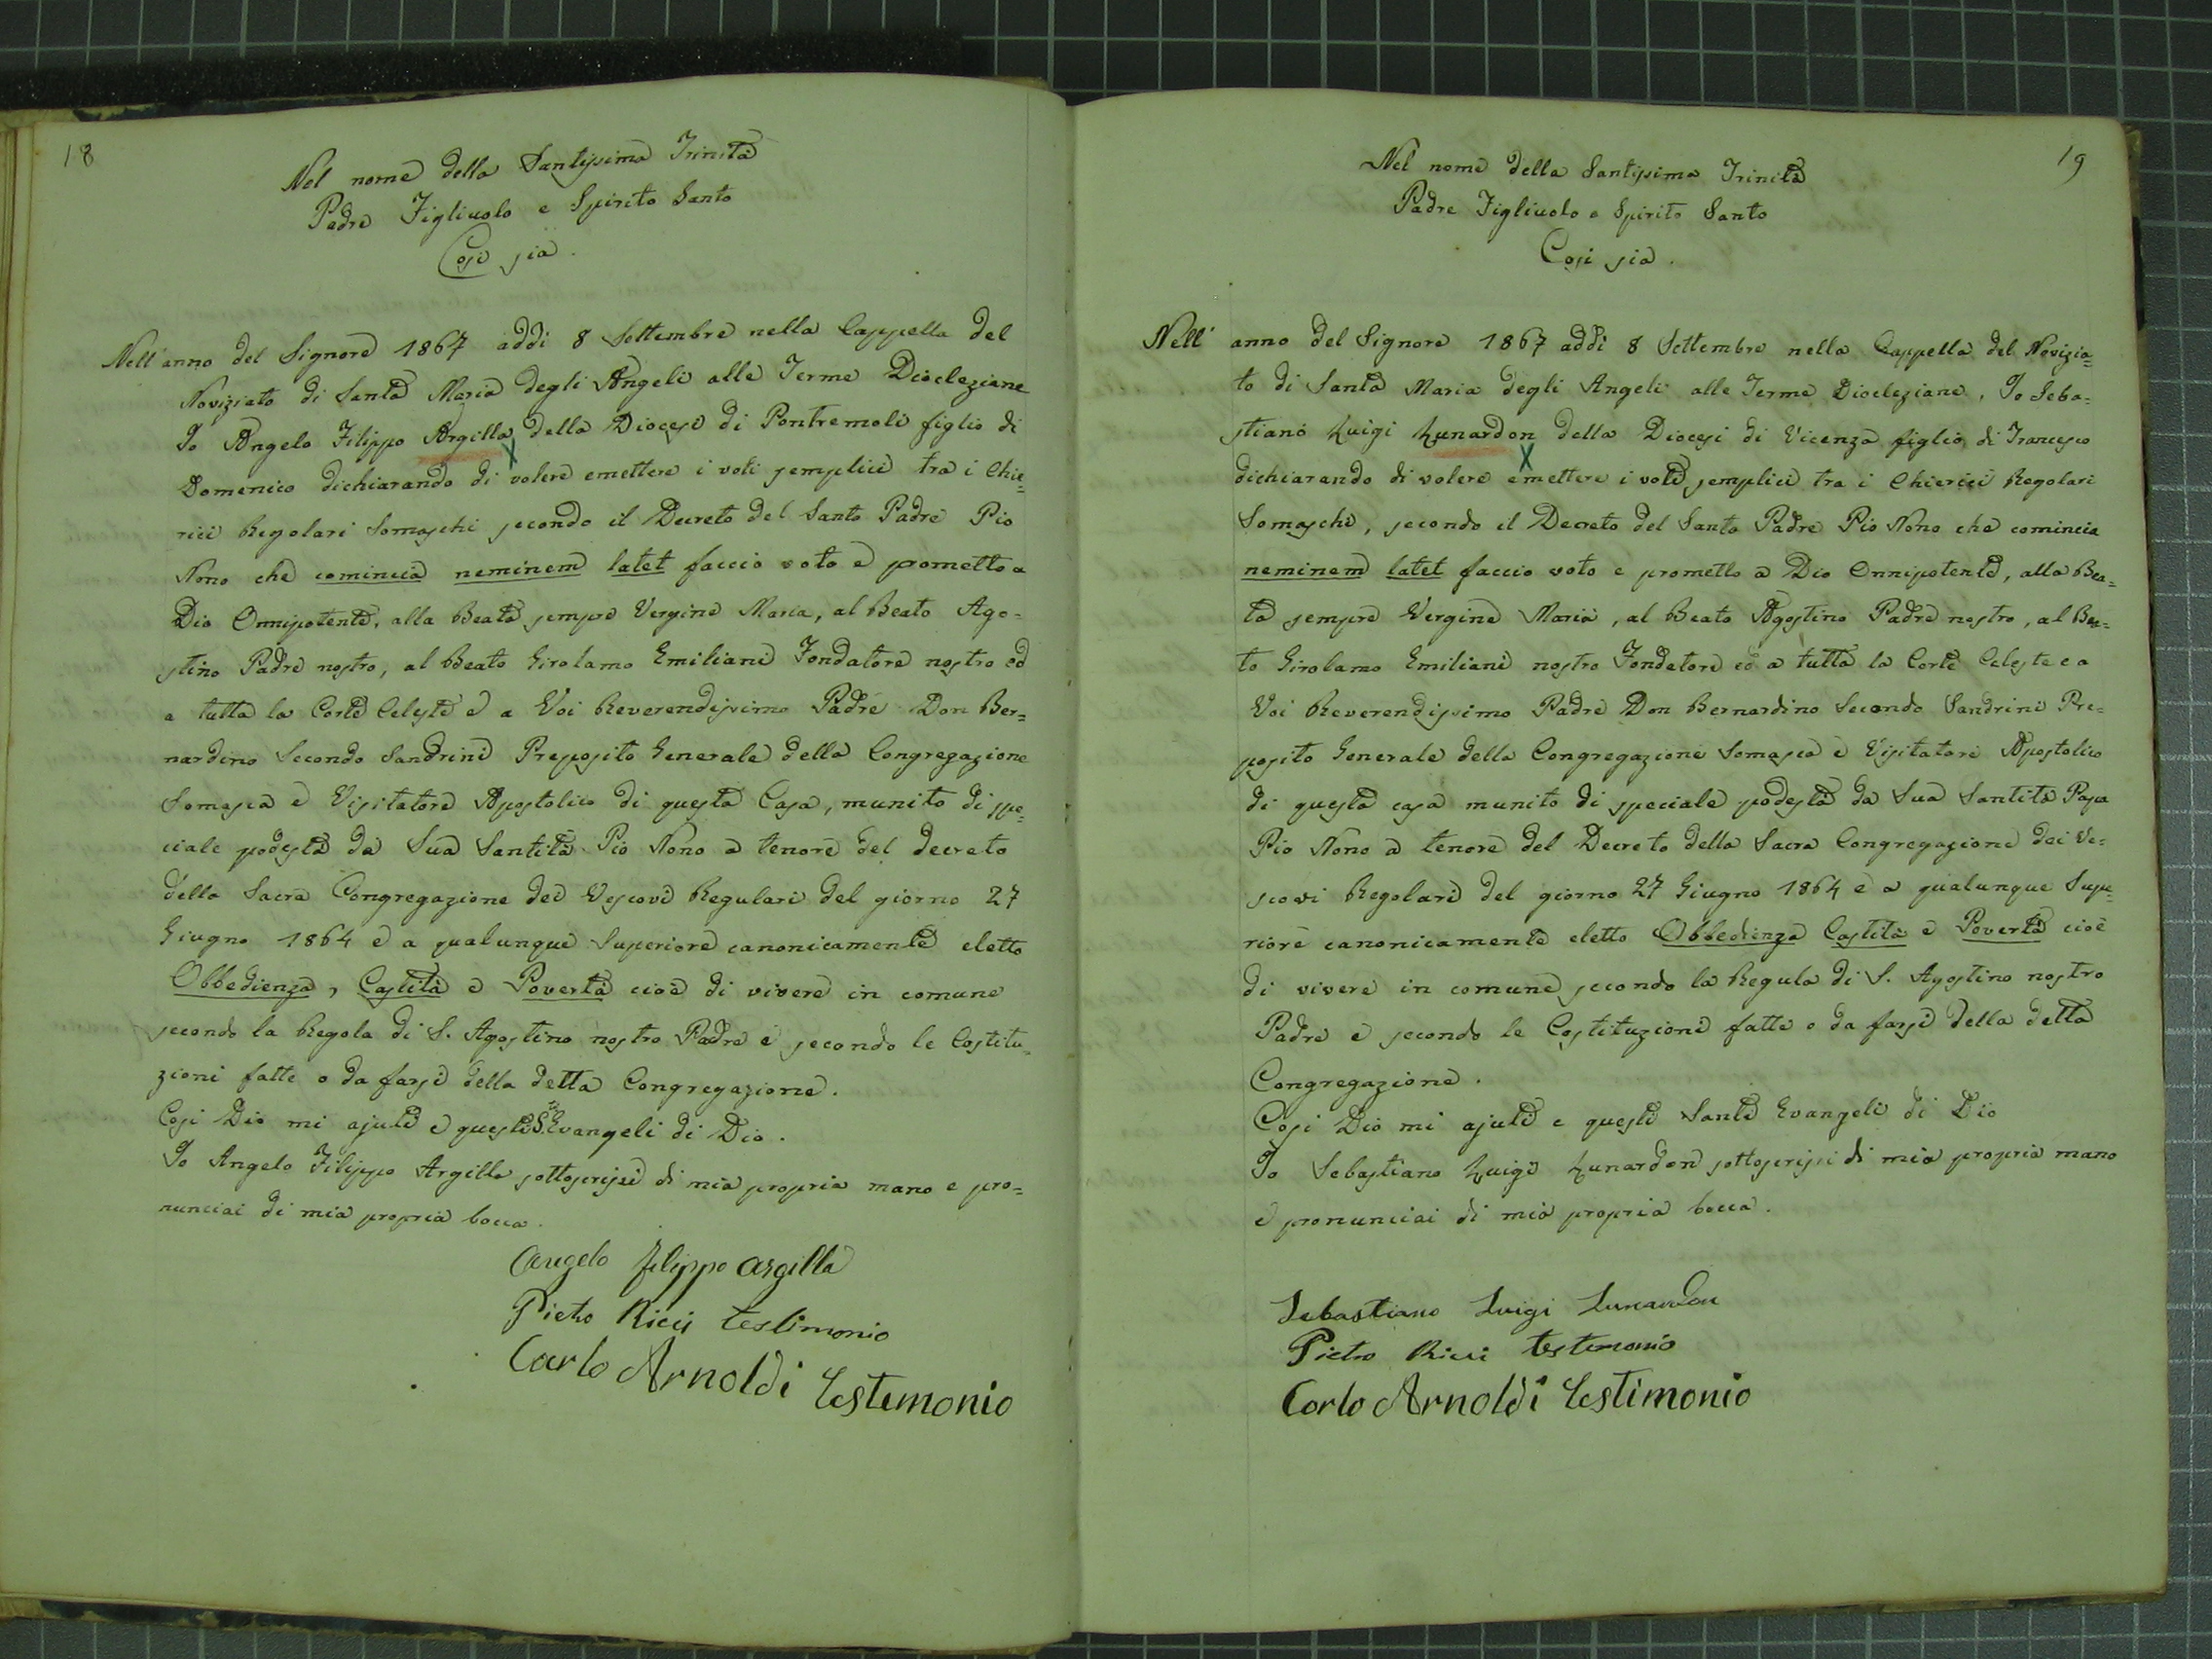 18
Nel nome della Santissima Trinità
Padre Figliuolo e Spirito Santo
Così sia.
Nell'anno del Signore 1867 addì 8 Settembre nella Cappella del
Noviziato di Santa Maria degli Angeli alle Terme Diocleziane
Io Angelo Filippo Argilla della Diocesi di Pontremoli figlio di
Domenico dichiarando di volere emettere i voti semplici tra i Chie=
rici Regolari Somaschi secondo il Decreto del Santo Padre Pio
Nono che comincia neminem latet faccio voto e prometto a
Dio Onnipotente, alla Beata sempre Vergine Maria, al Beato Ago=
stino Padre nostro, al Beato Girolamo Emiliani Fondatore nostro ed
a tutta la Corte Celeste e a Voi Reverendissimo Padre Don Ber=
nardino Secondo Sandrini Preposito Generale della Congregazione
Somasca e Visitatore Apostolico di questa Casa, munito di spe=
ciale podestà da Sua Santità Pio Nono a tenore del decreto
della Sacra Congregazione dei Vescovi Regulari del giorno 27
Giugno 1864 e a qualunque Superiore canonicamente eletto
Obbedienza, Castità e Povertà cioè di vivere in comune
secondo la Regola di S. Agostino nostro Padre e secondo le Costitu=
zioni fatte o da farsi della detta Congregazione.
Così Dio mi ajuti e questi S.ti Evangeli di Dio.
Io Angelo Filippo Argilla sottoscrissi di mia propria mano e pro=
nunciai di mia propria bocca.
Angelo Filippo Argilla
Pietro Ricci testimonio
Carlo Arnoldi Testimonio
19
Nel nome della Santissima Trinità
Padre Figliuolo e Spirito Santo
Così sia.
Nell' anno del Signore 1867 addì 8 Settembre nella Cappella del Novizia=
to di Santa Maria degli Angeli alle Terme Diocleziane, Io Seba=
stiano Luigi Lunardon della Diocesi di Vicenza figlio di Francesco
dichiarando di volere emettere i voti semplici tra i Chierici Regolari
Somaschi, secondo il Decreto del Santo Padre Pio Nono che comincia
neminem latet faccio voto e prometto a Dio Onnipotente, alla Bea=
ta sempre Vergine Maria, al Beato Agostino Padre nostro, al Bea=
to Girolamo Emiliani nostro Fondatore ed a tutta la Corte Celeste e a
Voi Reverendissimo Padre Don Bernardino Secondo Sandrini Pre=
posito Generale della Congregazione Somasca e Visitatore Apostolico
di questa casa munito di speciale podestà da Sua Santità Papa
Pio Nono a tenore del Decreto della Sacra Congregazione dei Ve=
scovi Regolari del giorno 27 Giugno 1864 e a qualunque Supe=
riore canonicamente eletto Obbedienza Castità e Povertà cioè
di vivere in comune secondo la Regula di S. Agostino nostro
Padre e secondo le Costituzioni fatte o da farsi della detta
Congregazione.
Così Dio mi ajuti e questi Santi Evangeli di Dio
Io Sebastiano Luigi Lunardon sottoscrissi di mia propria mano
e pronunciai di mia propria bocca.
Sebastiano Luigi Lunardon
Pietro Ricci testimonio
Carlo Arnoldi Testimonio